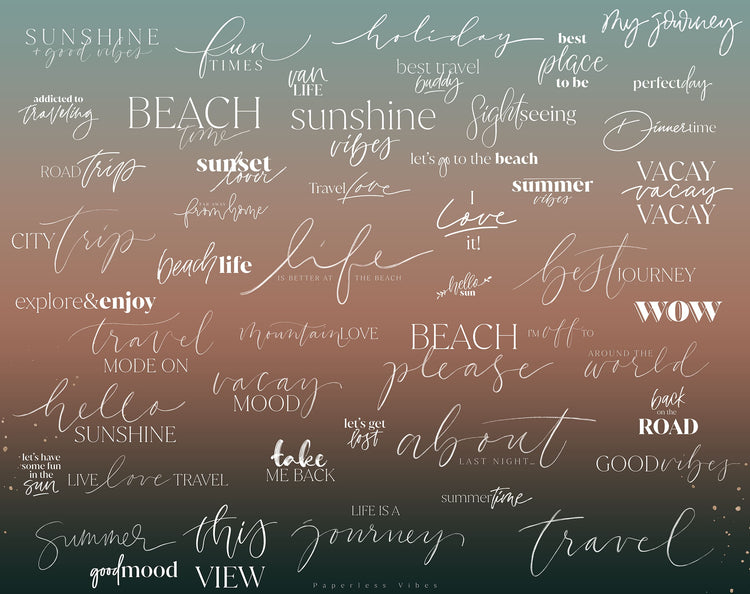 SUNSHINE
+ good vibes
fun
TIMES
holiday
best
place
to be
my journey
van
LIFE
best travel
buddy
perfectday
addicted to
traveling
BEACH
time
sunshine
vibes
Sightseeing
Dinnertime
ROAD trip
sunset
lover
let's go to the beach
Travel Love
summer
vibes
VACAY
vacay
VACAY
FAR AWAY
from home
I
Love
it!
CITY trip
beach life
life
IS BETTER AT THE BEACH
best JOURNEY
hello
sun
explore&enjoy
WOW
travel
MODE ON
mountain LOVE
BEACH
please
I'M off TO
AROUND THE
world
vacay
MOOD
hello
SUNSHINE
let's get
lost
about
LAST NIGHT...
back
on the
ROAD
let's have
some fun
in the
sun
LIVE love TRAVEL
take
ME BACK
GOOD vibes
summertime
summer
good mood
this
VIEW
LIFE IS A
journey
travel
Paperless Vibes